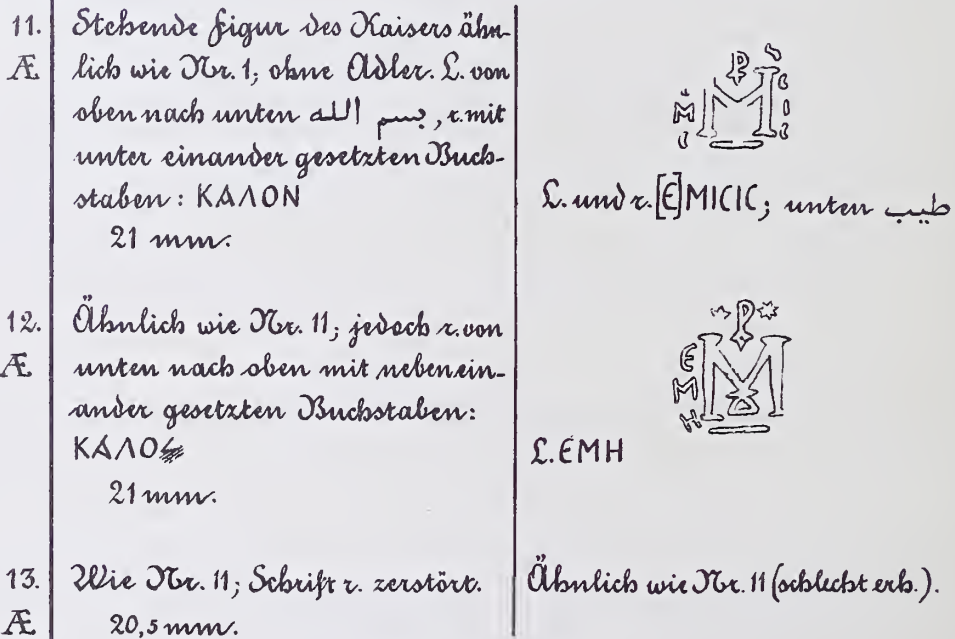 11. Stehende Figur des Kaisers ähn-
Æ lich wie Nr. 1; ohne Adler. L. von
oben nach unten بسم الله, r. mit
unter einander gesetzten Buch-
staben: KAΛON
21 mm.
L. und r. [Є]MICIC; unten طيب
12. Ähnlich wie Nr. 11; jedoch r. von
Æ unten nach oben mit nebenein-
ander gesetzten Buchstaben:
KAΛO
21 mm.
P
Є
M
M
H
L. ЄMH
13. Wie Nr. 11; Schrift r. zerstört.
Æ 20,5 mm.
Ähnlich wie Nr. 11 (schlecht erh.).